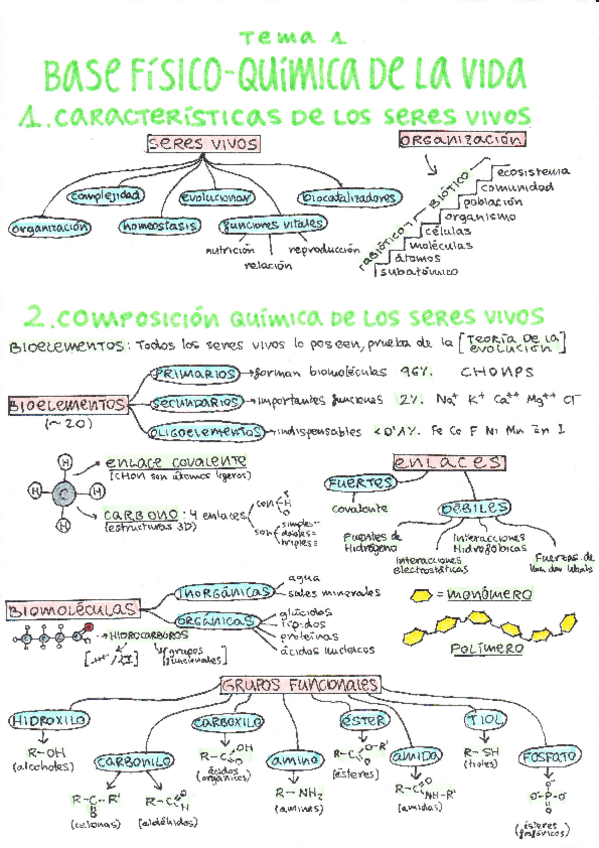 Tema 1
BASE FÍSICO-QUÍMICA DE LA VIDA
1. CARACTERÍSTICAS DE LOS SERES VIVOS
SERES VIVOS
ORGANIZACIÓN
complejidad
evolucionar
biocatalizadores
organización
homeostasis
funciones vitales
nutrición
relación
reproducción
ABIÓTICO
BIÓTICO
ecosistema
comunidad
población
organismo
células
moléculas
átomos
subatómico
2. COMPOSICIÓN QUÍMICA DE LOS SERES VIVOS
BIOELEMENTOS: Todos los seres vivos lo poseen, prueba de la [TEORÍA DE LA EVOLUCIÓN]
BIOELEMENTOS
(~20)
PRIMARIOS → forman biomoléculas 96% CHONPS
SECUNDARIOS → importantes funciones 2% Na⁺ K⁺ Ca⁺⁺ Mg⁺⁺ Cl⁻
OLIGOELEMENTOS → indispensables <0'1% Fe Co F Ni Mn Zn I
H
H
C
H
H
ENLACE COVALENTE
(CHON son átomos ligeros)
CARBONO: 4 enlaces
(estructuras 3D)
con
H
O
N
son
simples-
dobles=
triples≡
ENLACES
FUERTES
covalente
DÉBILES
Puentes de Hidrógeno
Interacciones electrostáticas
Interacciones Hidrofóbicas
Fuerzas de Van der Waals
BIOMOLÉCULAS
INORGÁNICAS
agua
sales minerales
ORGÁNICAS
glúcidos
lípidos
proteínas
ácidos nucleicos
C C C C
HIDROCARBUROS
grupos funcionales
= MONÓMERO
POLÍMERO
GRUPOS FUNCIONALES
HIDROXILO
R-OH
(alcoholes)
CARBONILO
R-C-R'
O
(cetonas)
R-C
O
H
(aldéhidos)
CARBOXILO
R-C
OH
O
(ácidos orgánicos)
amino
R-NH₂
(aminas)
ÉSTER
R-C
O-R'
O
(ésteres)
amida
R-C
O
NH-R'
(amidas)
TIOL
R-SH
(tioles)
FOSFATO
O-P-O
O
(ésteres fosfóricos)